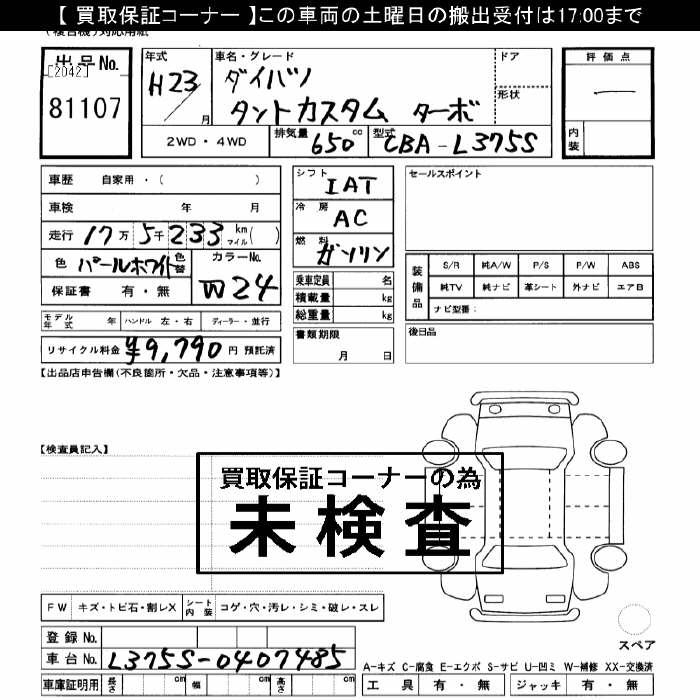 【 買取保証コーナー 】この車両の土曜日の搬出受付は17:00まで
出品No. [2042] 81107
年式 H23/ 月
車名・グレード ダイハツ タントカスタム ターボ
ドア 形状
2WD・4WD 排気量 650 cc 型式 CBA-L375S
評価点 ―
内装
車歴 自家用・( )
車検 年 月
走行 17万 5千 233 km マイル ( )
色 パールホワイト 色替 カラーNo. W24
保証書 有・無
モデル年式 年 ハンドル 左・右 ディーラー・並行
リサイクル料金 ¥9,790 円 預託済
シフト IAT
冷房 AC
燃料 ガソリン
乗車定員 名
積載量 kg
総重量 kg
書類期限 月 日
セールスポイント
装備品 S/R 純A/W P/S P/W ABS
純TV 純ナビ 革シート 外ナビ エアB
ナビ型番:
後日品
【出品店申告欄(不良箇所・欠品・注意事項等)】
【検査員記入】
買取保証コーナーの為
未検査
FW キズ・トビ石・割レX シート内装 コゲ・穴・汚レ・シミ・破レ・スレ
スペア
登録No.
車台No. L375S-0407485
車庫証明用 長さ cm 幅 cm 高さ cm
A-キズ C-腐食 E-エクボ S-サビ U-凹ミ W-補修 XX-交換済
工具 有・無 ジャッキ 有・無